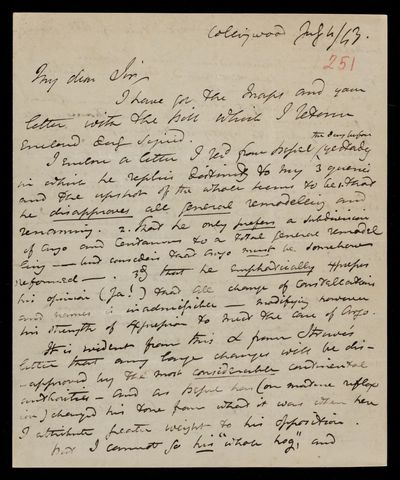 Collingwood July 4/43.
251
My dear Sir,
I have got the maps and your
letter with the bill which I return
Enclosed duly signed.
I Enclose a letter I rec'd from Bessel (yesterday
the day before
in which he replies distinctly to my 3 queries
and the upshot of the whole seems to be 1. that
he disapproves all general remodelling and
renaming. 2. that he only prefers a subdivision
of Argo and Centaurus to a total general remodel
ling — but considers that Argo must be somehow
reformed — . 3d that he emphatically expresses
his opinion (Ja!) that all change of Constellations
and names is inadmissible — modifying however
his strength of expression to meet the case of Argo.
It is evident from this & from Struve's
letter that any large changes will be dis-
-approved by the most considerable continental
authorities — and as Bessel has (on mature reflex
ion) changed his tone from what it was when here
I attribute greater weight to his opposition.
But I cannot go his "whole hog", and